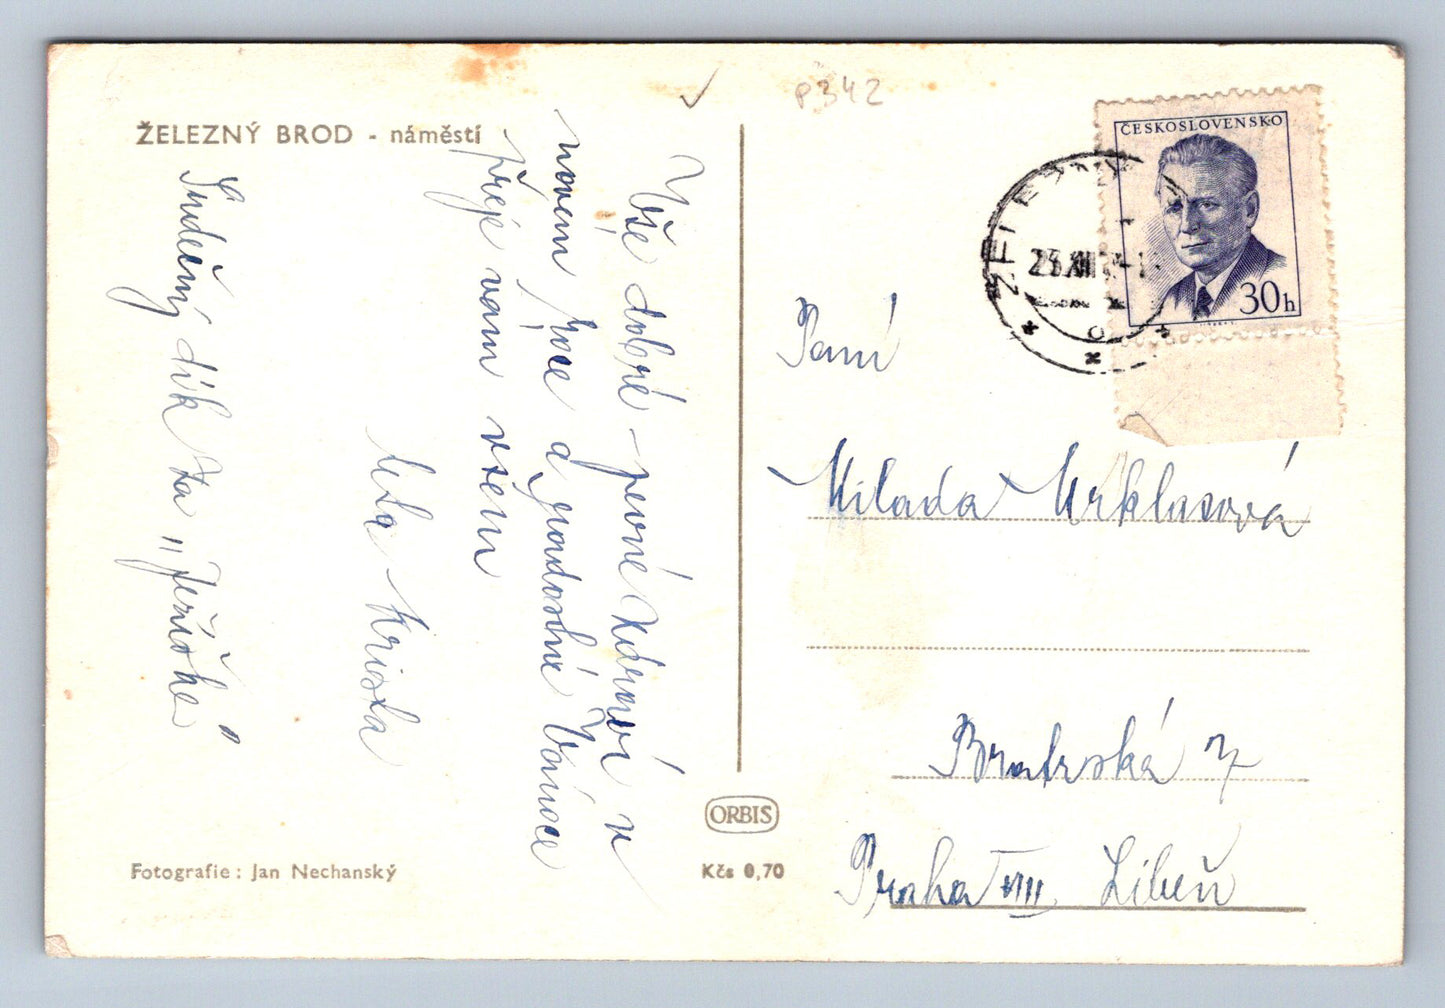 P342
ŽELEZNÝ BROD - náměstí
Vše dobré - pevné zdraví v
novém roce a radostné Vánoce
přeje vám všem
teta Krista
Srdečný dík za „Ježíška"
ČESKOSLOVENSKO
30h
ŽELEZNÝ
23.XII
Paní
Milada Mrklasová
Bratrská 7
Praha VIII Libeň
ORBIS
Fotografie: Jan Nechanský
Kčs 0,70